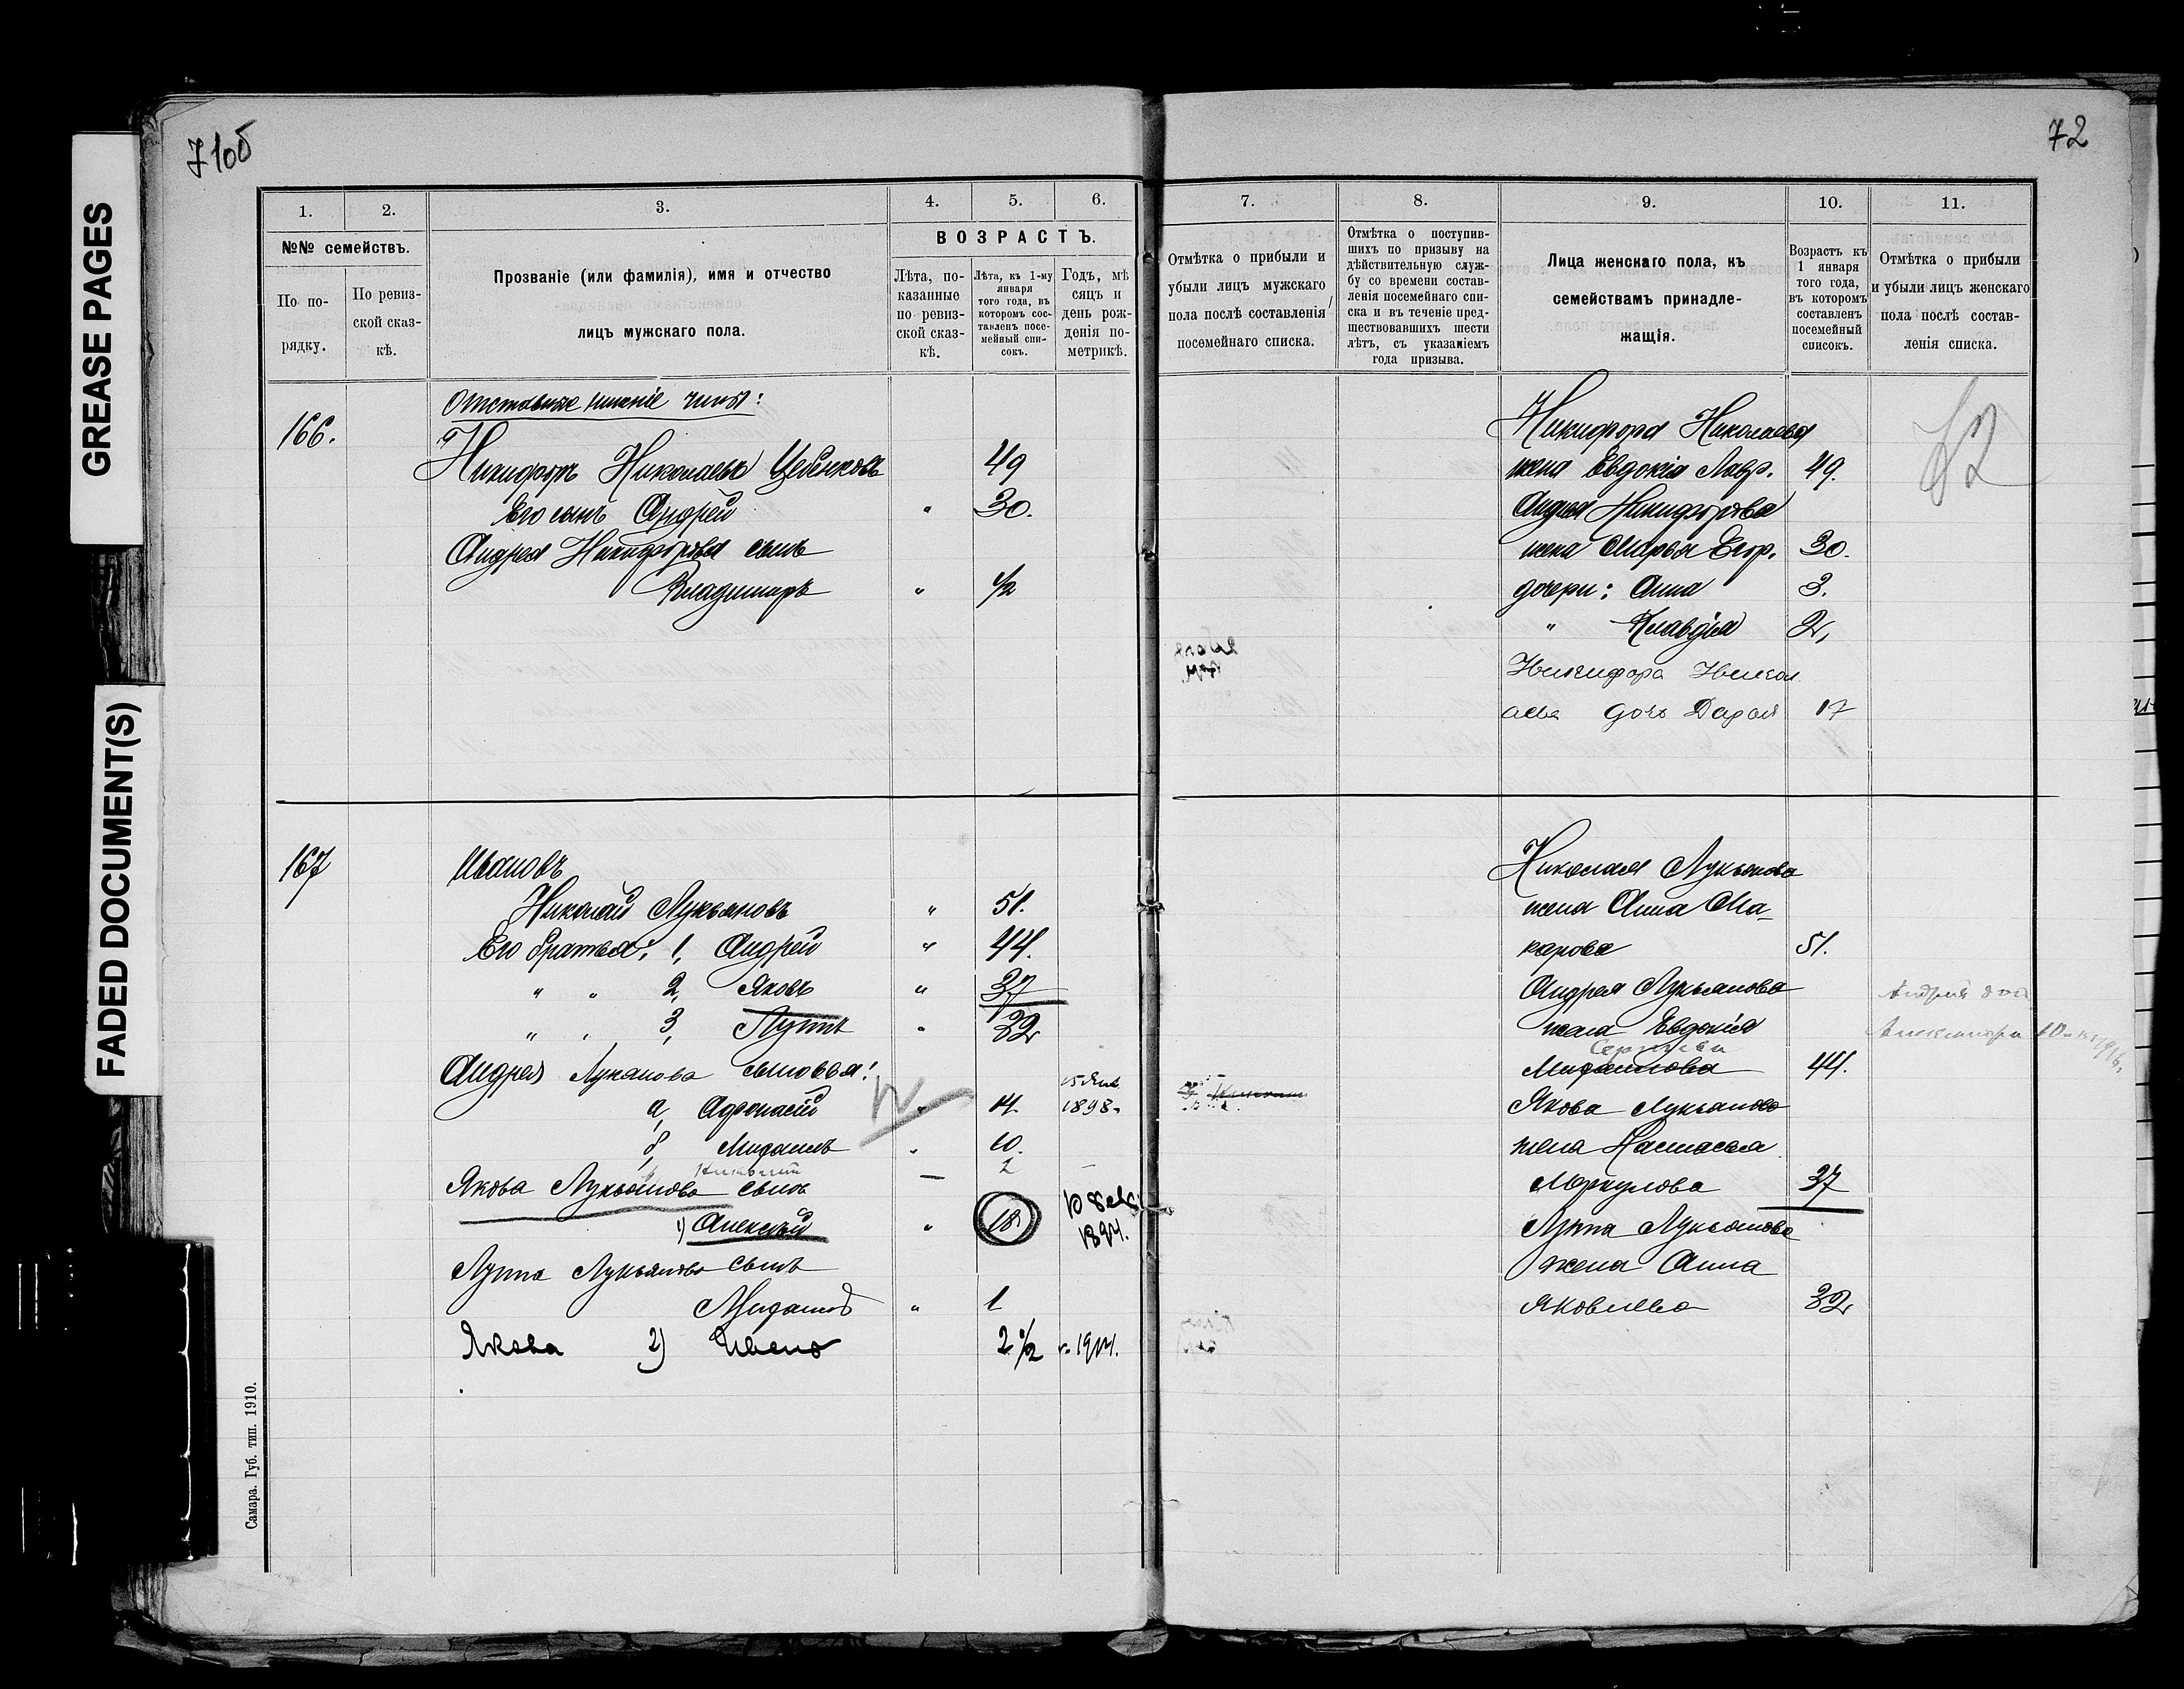 GREASE PAGES
FADED DOCUMENT(S)
71об
1.
2.
3.
4.
5.
6.
№№ семействъ.
По по-
рядку.
По ревиз-
ской сказ-
кѣ.
Прозваніе (или фамилія), имя и отчество
лицъ мужскаго пола.
ВОЗРАСТЪ.
Лѣта, по-
казанные
по ревиз-
ской сказ-
кѣ.
Лѣта, къ 1-му
января
того года, въ
которомъ сос-
тавленъ посе-
мейный спи-
сокъ.
Годъ, мѣ
сяцъ и
день рож-
денія по-
метрикѣ.
Отставные нижніе чины:
166.
Никифоръ Николаевъ Цебенковъ 49
Его сынъ Андрей " 30.
Андрея Никифорова сынъ
Владиміръ " 1/2
167 Ивановъ
Николай Лукьяновъ " 51.
Его братья: 1, Андрей " 44.
" " 2, Яковъ " 37
" " 3, Луппъ " 32
Андрея Лукьянова сыновья:
а, Афонасій " 14. 15 Янв. 1898.
б, Михаилъ " 10.
2
Якова Лукьянова сынъ
1) Алексѣй " 18 10 Фев. 1894.
Луппа Лукьянова сынъ
Михаилъ " 1
Якова 2) Иванъ 2 1/2 1914.
Самара. Губ. тип. 1910.
72
7.
8.
9.
10.
11.
Отмѣтка о прибыли и
убыли лицъ мужскаго
пола послѣ составленія
посемейнаго списка.
Отмѣтка о поступив-
шихъ по призыву на
дѣйствительную служ-
бу со времени состав-
ленія посемейнаго спи-
ска и въ теченіе пред-
шествовавшихъ шести
лѣтъ, съ указаніемъ
года призыва.
Лица женскаго пола, къ
семействамъ принадле-
жащія.
Возрастъ къ
1 января
того года,
въ которомъ
составленъ
посемейный
списокъ.
Отмѣтка о прибыли
и убыли лицъ женскаго
пола послѣ состав-
ленія списка.
Никифора Николаева
жена Евдокія Лавр. 49.
Андрея Никифорова
жена Марья Егор. 30.
дочери: Анна 3.
" Клавдія 2,
Никифора Никол
аева дочь Дарья 17
Николая Лукьянова
жена Анна Ма-
карова 51.
Андрея Лукьянова
жена Евдокія
Сергѣева
Михайлова 44.
Якова Лукьянова
жена Настасья
Меркулова 37
Луппа Лукьянова
жена Анна
Яковлева 32
Андрея доч
Александра